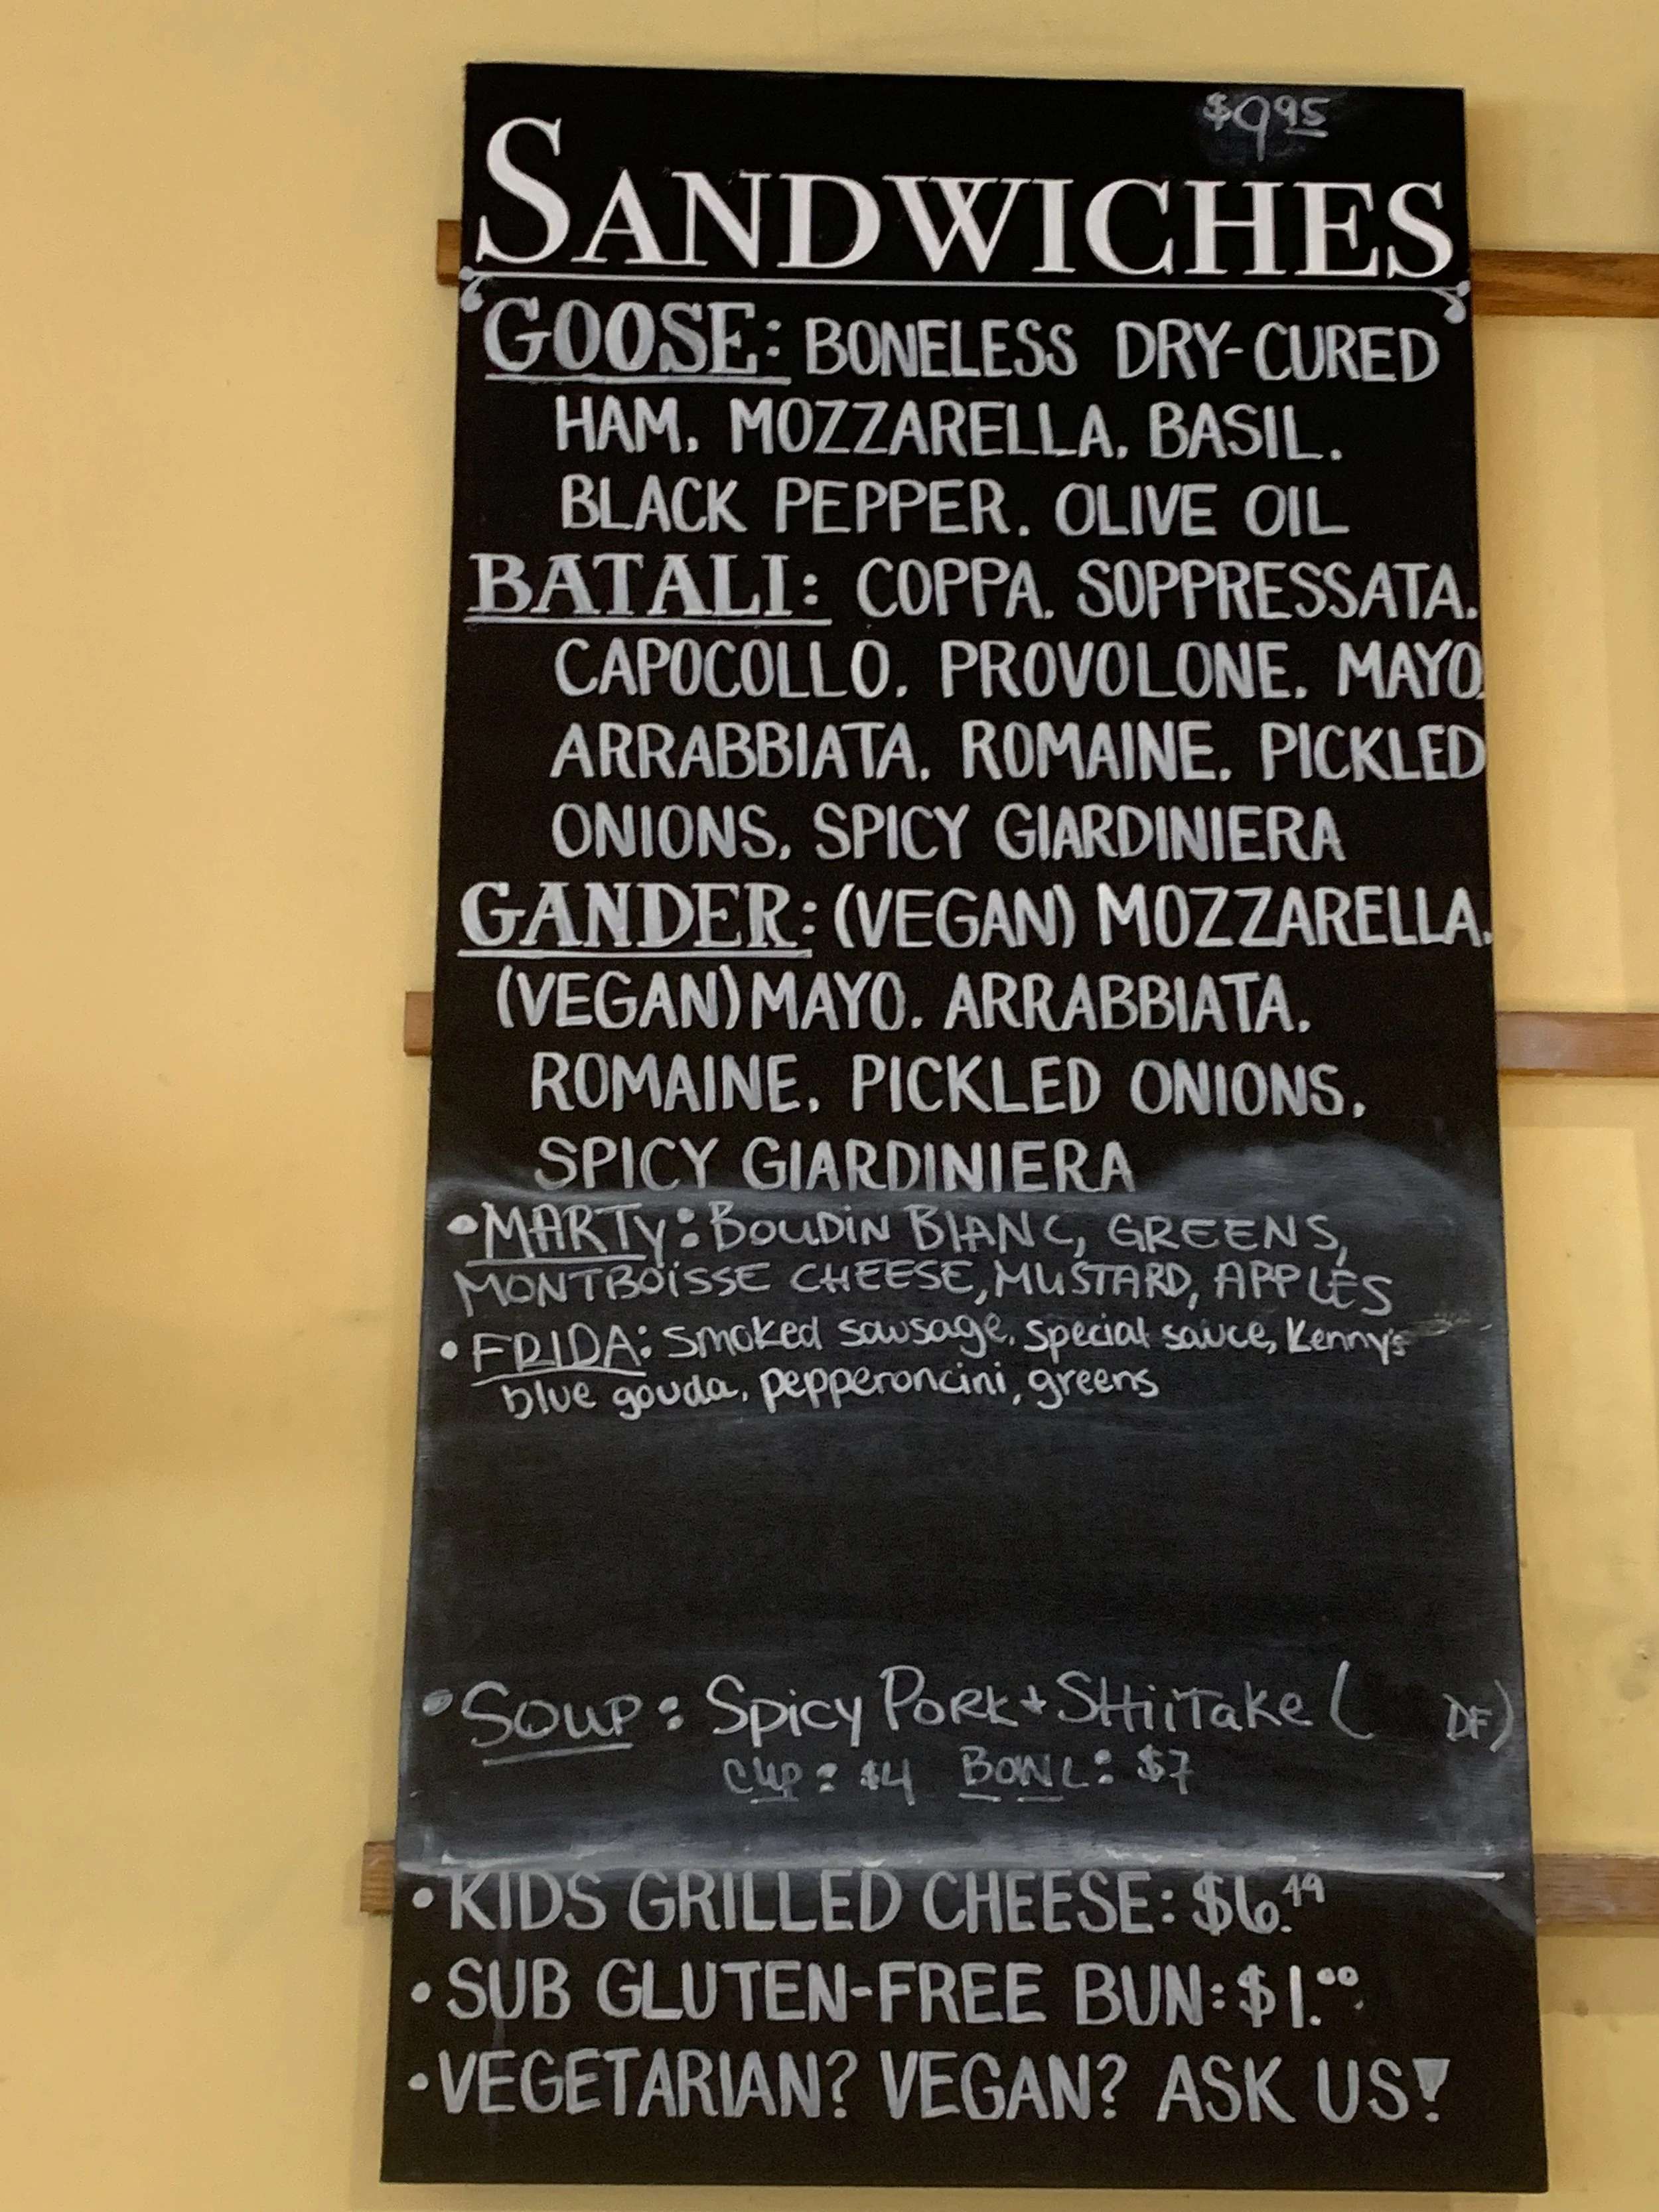 $9.95
SANDWICHES
GOOSE: BONELESS DRY-CURED
HAM, MOZZARELLA, BASIL,
BLACK PEPPER, OLIVE OIL
BATALI: COPPA, SOPPRESSATA,
CAPOCOLLO, PROVOLONE, MAYO,
ARRABBIATA, ROMAINE, PICKLED
ONIONS, SPICY GIARDINIERA
GANDER: (VEGAN) MOZZARELLA,
(VEGAN) MAYO, ARRABBIATA,
ROMAINE, PICKLED ONIONS,
SPICY GIARDINIERA
•MARTY: BOUDIN BLANC, GREENS,
MONTBOISSE CHEESE, MUSTARD, APPLES
•FRIDA: Smoked sausage, special sauce, Kenny's
blue gouda, pepperoncini, greens
•SOUP: Spicy PORK + SHiiTake ( DF)
CUP: $4 BOWL: $7
•KIDS GRILLED CHEESE: $6.49
•SUB GLUTEN-FREE BUN: $1.00
•VEGETARIAN? VEGAN? ASK US!